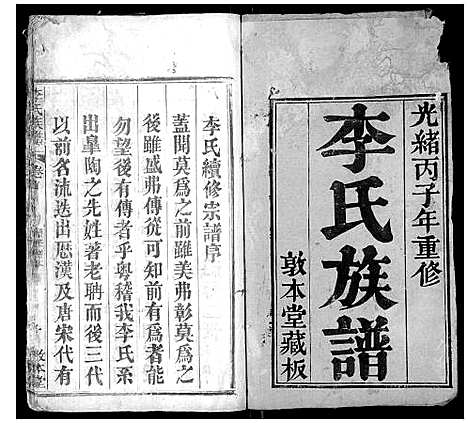 光緒丙子年重修
李氏族譜
敦本堂藏板
李氏續修宗譜序
蓋聞莫爲之前雖美弗彰莫爲之
後雖盛弗傳從可知前有爲者能
勿望後有傳者乎粵稽我李氏系
出臯陶之先姓著老聃而後三代
以前名流迭出歷漢及唐宋代有
敦本堂